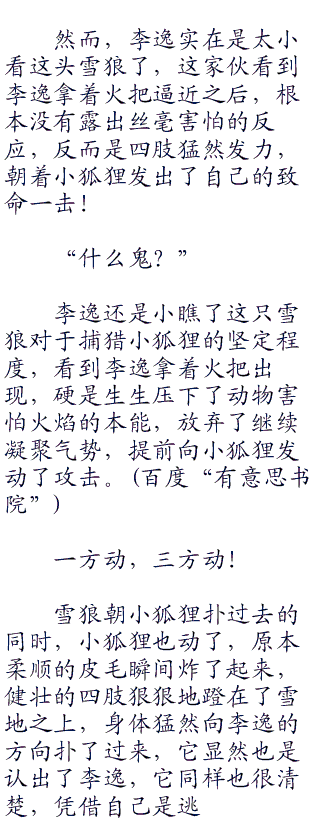 然而，李逸实在是太小
看这头雪狼了，这家伙看到
李逸拿着火把逼近之后，根
本没有露出丝毫害怕的反
应，反而是四肢猛然发力，
朝着小狐狸发出了自己的致
命一击！
“什么鬼？”
李逸还是小瞧了这只雪
狼对于捕猎小狐狸的坚定程
度，看到李逸拿着火把出
现，硬是生生压下了动物害
怕火焰的本能，放弃了继续
凝聚气势，提前向小狐狸发
动了攻击。(百度“有意思书
院”)
一方动，三方动！
雪狼朝小狐狸扑过去的
同时，小狐狸也动了，原本
柔顺的皮毛瞬间炸了起来，
健壮的四肢狠狠地蹬在了雪
地之上，身体猛然向李逸的
方向扑了过来，它显然也是
认出了李逸，它同样也很清
楚，凭借自己是逃